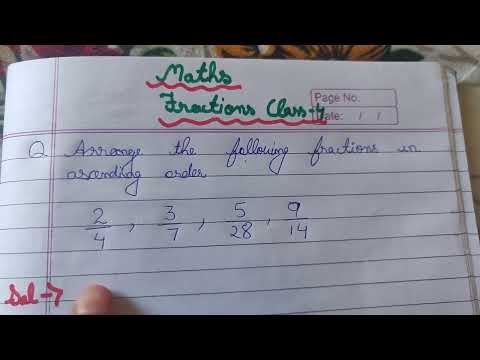 Maths
Fractions Class-4
Page No.
Date: / /
Q Arrange the following fractions in
ascending order
2/4, 3/7, 5/28, 9/14
Sol-7